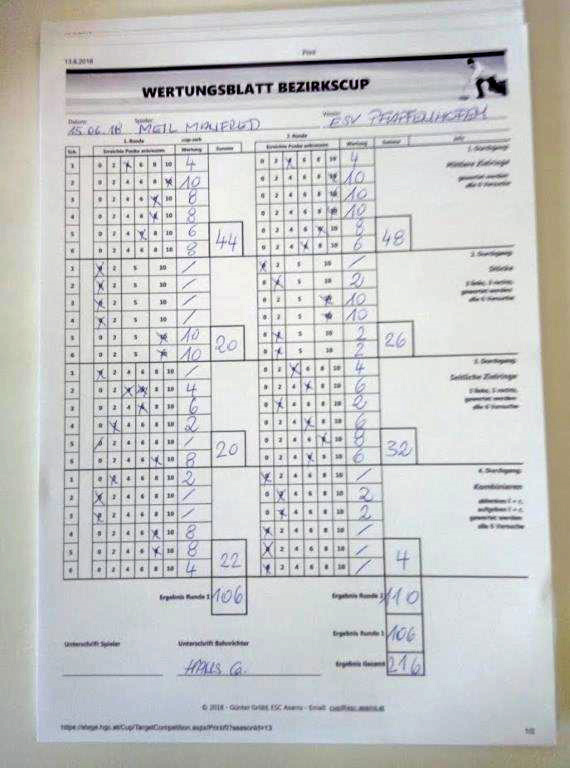 13.6.2018 Print
WERTUNGSBLATT BEZIRKSCUP
Datum: 15.06.18 Spieler: MEIL MANFRED Verein: ESV PFAFFENHOFEN
1. Runde 2. Runde
Sch. Erreichte Punkte ankreuzen Wertung Summe Erreichte Punkte ankreuzen Wertung Summe Info
1. Durchgang:
1 0 2 4 6 8 10 4 0 2 4 6 8 10 4
Mittlere Zielringe
2 0 2 4 6 8 10 10 0 2 4 6 8 10 10
gewertet werden:
alle 6 Versuche
3 0 2 4 6 8 10 8 0 2 4 6 8 10 10
4 0 2 4 6 8 10 8 0 2 4 6 8 10 10
5 0 2 4 6 8 10 6 44 0 2 4 6 8 10 8 48
6 0 2 4 6 8 10 8 0 2 4 6 8 10 6
2. Durchgang:
1 0 2 5 10 / 0 2 5 10 /
Stöcke
2 0 2 5 10 / 0 2 5 10 2
3 linke, 3 rechte,
gewertet werden:
alle 6 Versuche
3 0 2 5 10 / 0 2 5 10 10
4 0 2 5 10 / 0 2 5 10 10
5 0 2 5 10 10 20 0 2 5 10 2 26
6 0 2 5 10 10 0 2 5 10 2
3. Durchgang:
1 0 2 4 6 8 10 / 0 2 4 6 8 10 4
Seitliche Zielringe
2 0 2 4 6 8 10 4 0 2 4 6 8 10 6
3 linke, 3 rechte,
gewertet werden:
alle 6 Versuche
3 0 2 4 6 8 10 6 0 2 4 6 8 10 2
4 0 2 4 6 8 10 2 0 2 4 6 8 10 6
5 0 2 4 6 8 10 / 20 0 2 4 6 8 10 8 32
6 0 2 4 6 8 10 8 0 2 4 6 8 10 6
4. Durchgang:
1 0 2 4 6 8 10 2 0 2 4 6 8 10 /
Kombinieren
2 0 2 4 6 8 10 / 0 2 4 6 8 10 2
gewertet werden:
alle 6 Versuche
3 0 2 4 6 8 10 / 0 2 4 6 8 10 2
4 0 2 4 6 8 10 8 0 2 4 6 8 10 /
5 0 2 4 6 8 10 8 22 0 2 4 6 8 10 / 4
6 0 2 4 6 8 10 4 0 2 4 6 8 10 /
Ergebnis Runde 1 106 Ergebnis Runde 2 110
Ergebnis Runde 1 106
Unterschrift Spieler Unterschrift Bahnrichter
HANS G. Ergebnis Gesamt 216
© 2018 - Günter Gröbl, ESC Asanis - Email: cup@esc.asanis.at
1/2